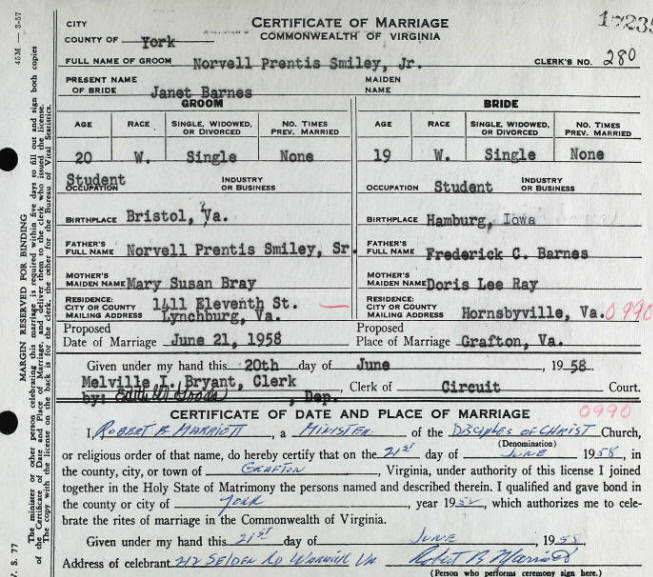 CITY
COUNTY OF York
CERTIFICATE OF MARRIAGE
COMMONWEALTH OF VIRGINIA
FULL NAME OF GROOM Norvell Prentis Smiley, Jr. CLERK'S NO. 280
PRESENT NAME OF BRIDE Janet Barnes MAIDEN NAME
GROOM BRIDE
AGE RACE SINGLE, WIDOWED, OR DIVORCED NO. TIMES PREV. MARRIED AGE RACE SINGLE, WIDOWED, OR DIVORCED NO. TIMES PREV. MARRIED
20 W. Single None 19 W. Single None
Student
OCCUPATION INDUSTRY OR BUSINESS OCCUPATION Student INDUSTRY OR BUSINESS
BIRTHPLACE Bristol, Va. BIRTHPLACE Hamburg, Iowa
FATHER'S FULL NAME Norvell Prentis Smiley, Sr. FATHER'S FULL NAME Frederick C. Barnes
MOTHER'S MAIDEN NAME Mary Susan Bray MOTHER'S MAIDEN NAME Doris Lee Ray
RESIDENCE: CITY OR COUNTY MAILING ADDRESS 1411 Eleventh St. Lynchburg, Va. RESIDENCE: CITY OR COUNTY MAILING ADDRESS Hornsbyville, Va. 0990
Proposed Date of Marriage June 21, 1958 Proposed Place of Marriage Grafton, Va.
Given under my hand this 20th day of June, 1958.
Melville I. Bryant, Clerk
by: Edith W. , Dep. Clerk of Circuit Court.
CERTIFICATE OF DATE AND PLACE OF MARRIAGE 0990
I, ROBERT B. MARRIOTT, a MINISTER of the DISCIPLES OF CHRIST Church,
(Denomination)
or religious order of that name, do hereby certify that on the 21st day of JUNE 1958, in
the county, city, or town of GRAFTON, Virginia, under authority of this license I joined
together in the Holy State of Matrimony the persons named and described therein. I qualified and gave bond in
the county or city of YORK, year 19, which authorizes me to cele-
brate the rites of marriage in the Commonwealth of Virginia.
Given under my hand this 21st day of JUNE 1958.
Address of celebrant 212 SELDEN RD WARWICK VA Robert B Marriott
(Person who performs ceremony sign here.)
45M — 3-57
MARGIN RESERVED FOR BINDING
The minister or other person celebrating this marriage is required within five days to fill out and sign both copies
of the Certificate of Date and Place of Marriage, and deliver them to the clerk who issued the license.
The copy with the license on the back is for the clerk, the other for the Bureau of Vital Statistics.
V. S. 77